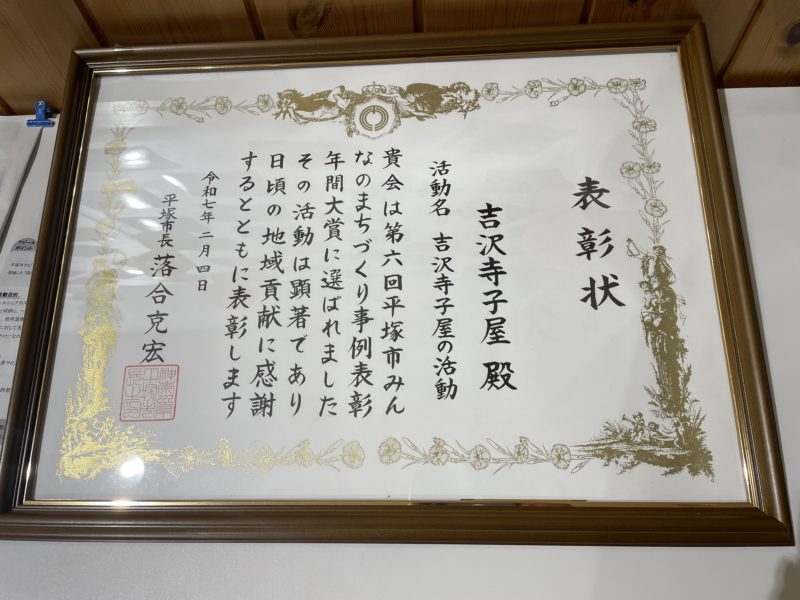 表彰状
吉沢寺子屋 殿
活動名 吉沢寺子屋の活動
貴会は第六回平塚市みん
なのまちづくり事例表彰
年間大賞に選ばれました
その活動は顕著であり
日頃の地域貢献に感謝
するとともに表彰します
令和七年二月四日
平塚市長 落合克宏